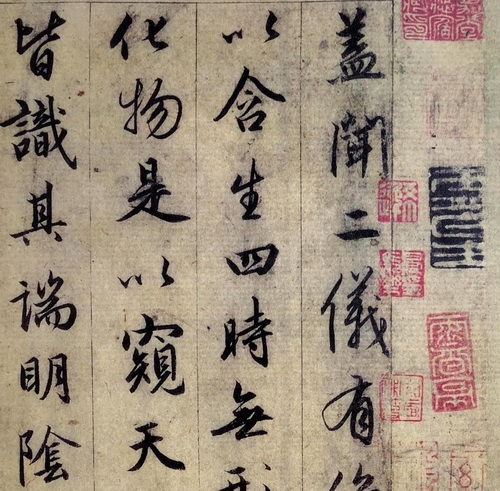 蓋聞二儀有
以含生四時無形
化物是以窺天
皆識其端明陰